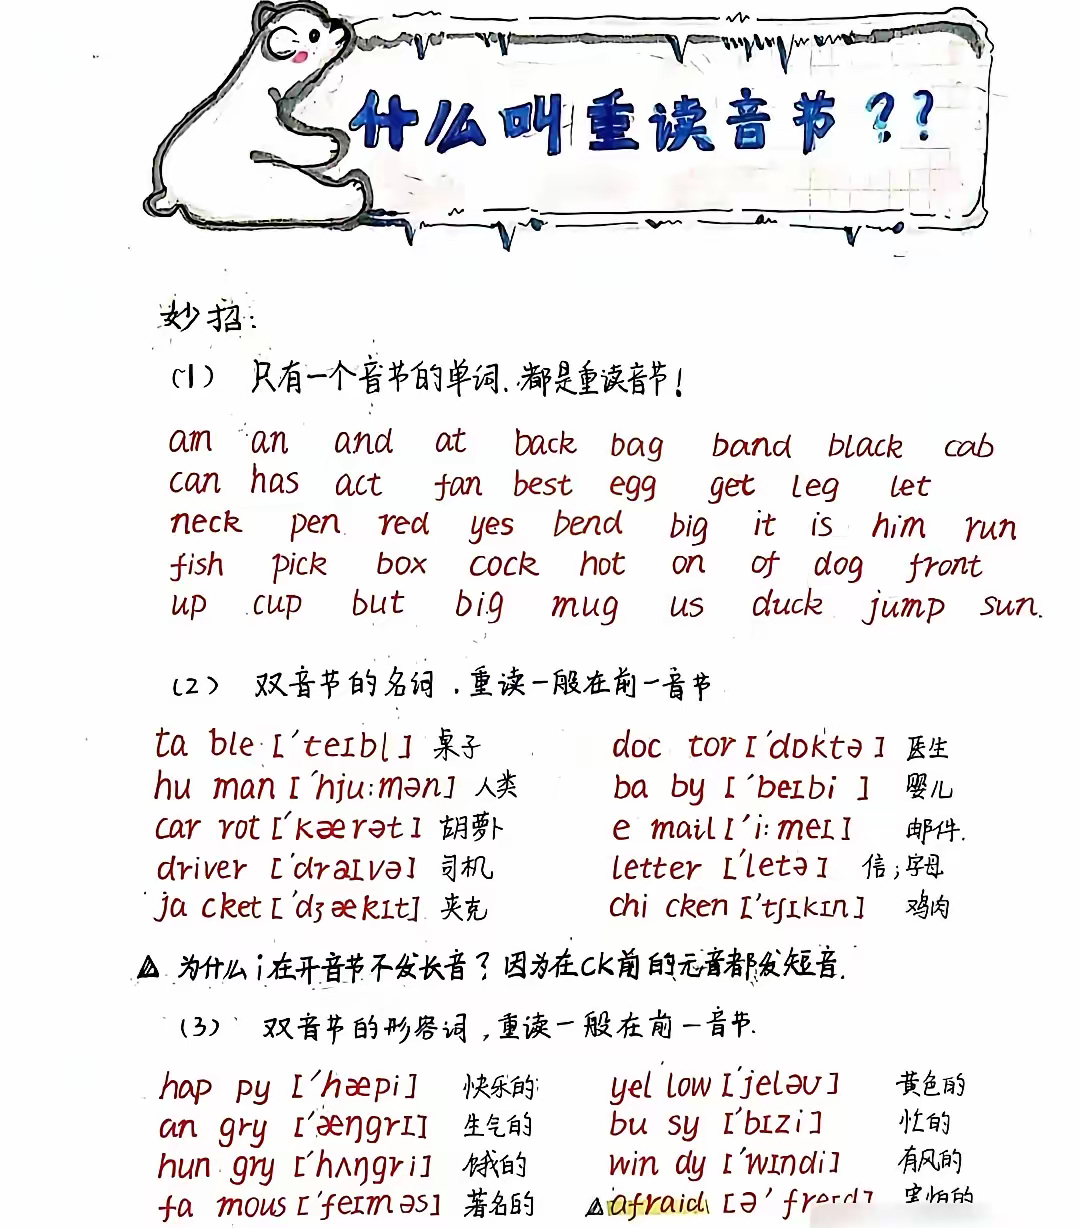 什么叫重读音节??
妙招:
(1) 只有一个音节的单词,都是重读音节!
am an and at back bag band black cab
can has act fan best egg get leg let
neck pen red yes bend big it is him run
fish pick box cock hot on of dog front
up cup but big mug us duck jump sun.
(2) 双音节的名词,重读一般在前一音节
ta ble ['teɪbl] 桌子 doc tor ['dɒktə] 医生
hu man ['hju:mən] 人类 ba by ['beɪbi] 婴儿
car rot ['kærət] 胡萝卜 e mail ['i:meɪ] 邮件.
driver ['draɪvə] 司机 letter ['letə] 信;字母
ja cket ['dʒækɪt] 夹克 chi cken ['tʃɪkɪn] 鸡肉
为什么i在开音节不发长音?因为在CK前的元音都发短音.
(3) 双音节的形容词,重读一般在前一音节.
hap py ['hæpi] 快乐的 yel low ['jeləʊ] 黄色的
an gry ['æŋgrɪ] 生气的 bu sy ['bɪzi] 忙的
hun gry ['hʌŋgri] 饿的 win dy ['wɪndi] 有风的
fa mous ['feɪməs] 著名的 afraid [ə'freɪd] 害怕的